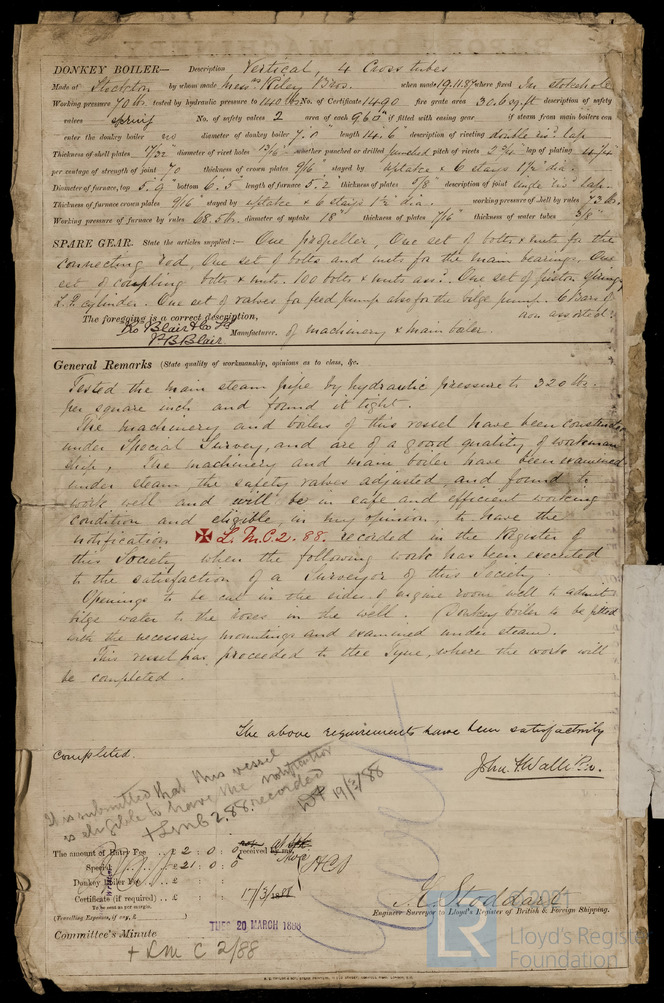 DONKEY BOILER— Description Vertical, 4 Cross tubes
Made at Stockton by whom made Messrs Riley Bros. when made 19.11.87 where fixed In stokehole
Working pressure 70 lbs tested by hydraulic pressure to 140 lbs No. of Certificate 1490 fire grate area 30.6 sq. ft description of safety
valves spring No. of safety valves 2 area of each 9.60" if fitted with easing gear if steam from main boilers can
enter the donkey boiler no diameter of donkey boiler 7.0" length 14.6" description of riveting double riv. lap
Thickness of shell plates 17/32" diameter of rivet holes 13/16" whether punched or drilled punched pitch of rivets 2 3/4" lap of plating 4 1/4"
per centage of strength of joint 70 thickness of crown plates 9/16" stayed by uptake & 6 stays 1 1/2" dia.
Diameter of furnace, top 5.9 bottom 6.5 length of furnace 5.2 thickness of plates 5/8" description of joint single riv. lap.
Thickness of furnace crown plates 9/16 stayed by uptake & 6 stays 1 1/2" dia. working pressure of shell by rules 72 lbs.
Working pressure of furnace by rules 68.5 lbs. diameter of uptake 18" thickness of plates 7/16" thickness of water tubes 3/8"
SPARE GEAR. State the articles supplied:— One propeller, One set of bolts & nuts for the
connecting rod, One set of bolts and nuts for the main bearings, One
set of coupling bolts & nuts. 100 bolts & nuts assd. One set of piston springs
L.P. cylinder. One set of valves for feed pump also for the bilge pump. 6 Bars of
iron assorted.
The foregoing is a correct description,
Blair & Co
Blair Manufacturer. of machinery & main boiler.
General Remarks (State quality of workmanship, opinions as to class, &c.
Tested the main steam pipe by hydraulic pressure to 320 lbs.
per square inch and found it tight.
The machinery and boilers of this vessel have been constructed
under Special Survey, and are of a good quality of workman
ship, The machinery and main boiler have been examined
under steam the safety valves adjusted, and found to
work well and will be in safe and efficient working
condition and eligible, in my opinion, to have the
notification ✠ L.M.C. 2.88. recorded in the Register of
this Society when the following work has been executed
to the satisfaction of a Surveyor of this Society.
Openings to be cut in the sides of engine room well to admit
bilge water to the roses in the well. Donkey boiler to be fitted
with the necessary mountings and examined under steam.
This vessel has proceeded to the Tyne, where the work will
be completed.
The above requirements have been satisfactorily
completed.
It is submitted that this vessel
is eligible to have the notification
+ LMC 2.88. recorded
19/3/88
The amount of Entry Fee . . £ 2 : 0 : 0 received by me,
Special . . £ 21 : 0 : 0
Donkey Boiler Fee . . £ : :
Certificate (if required) . . £ : : 17/3/1888
To be sent as per margin.
(Travelling Expenses, if any, £ )
Stoddart
Engineer Surveyor to Lloyd's Register of British & Foreign Shipping.
TUES 20 MARCH 1888
Committee's Minute
+ LM C 2/88
© 2021
LR
Lloyd's Register
Foundation